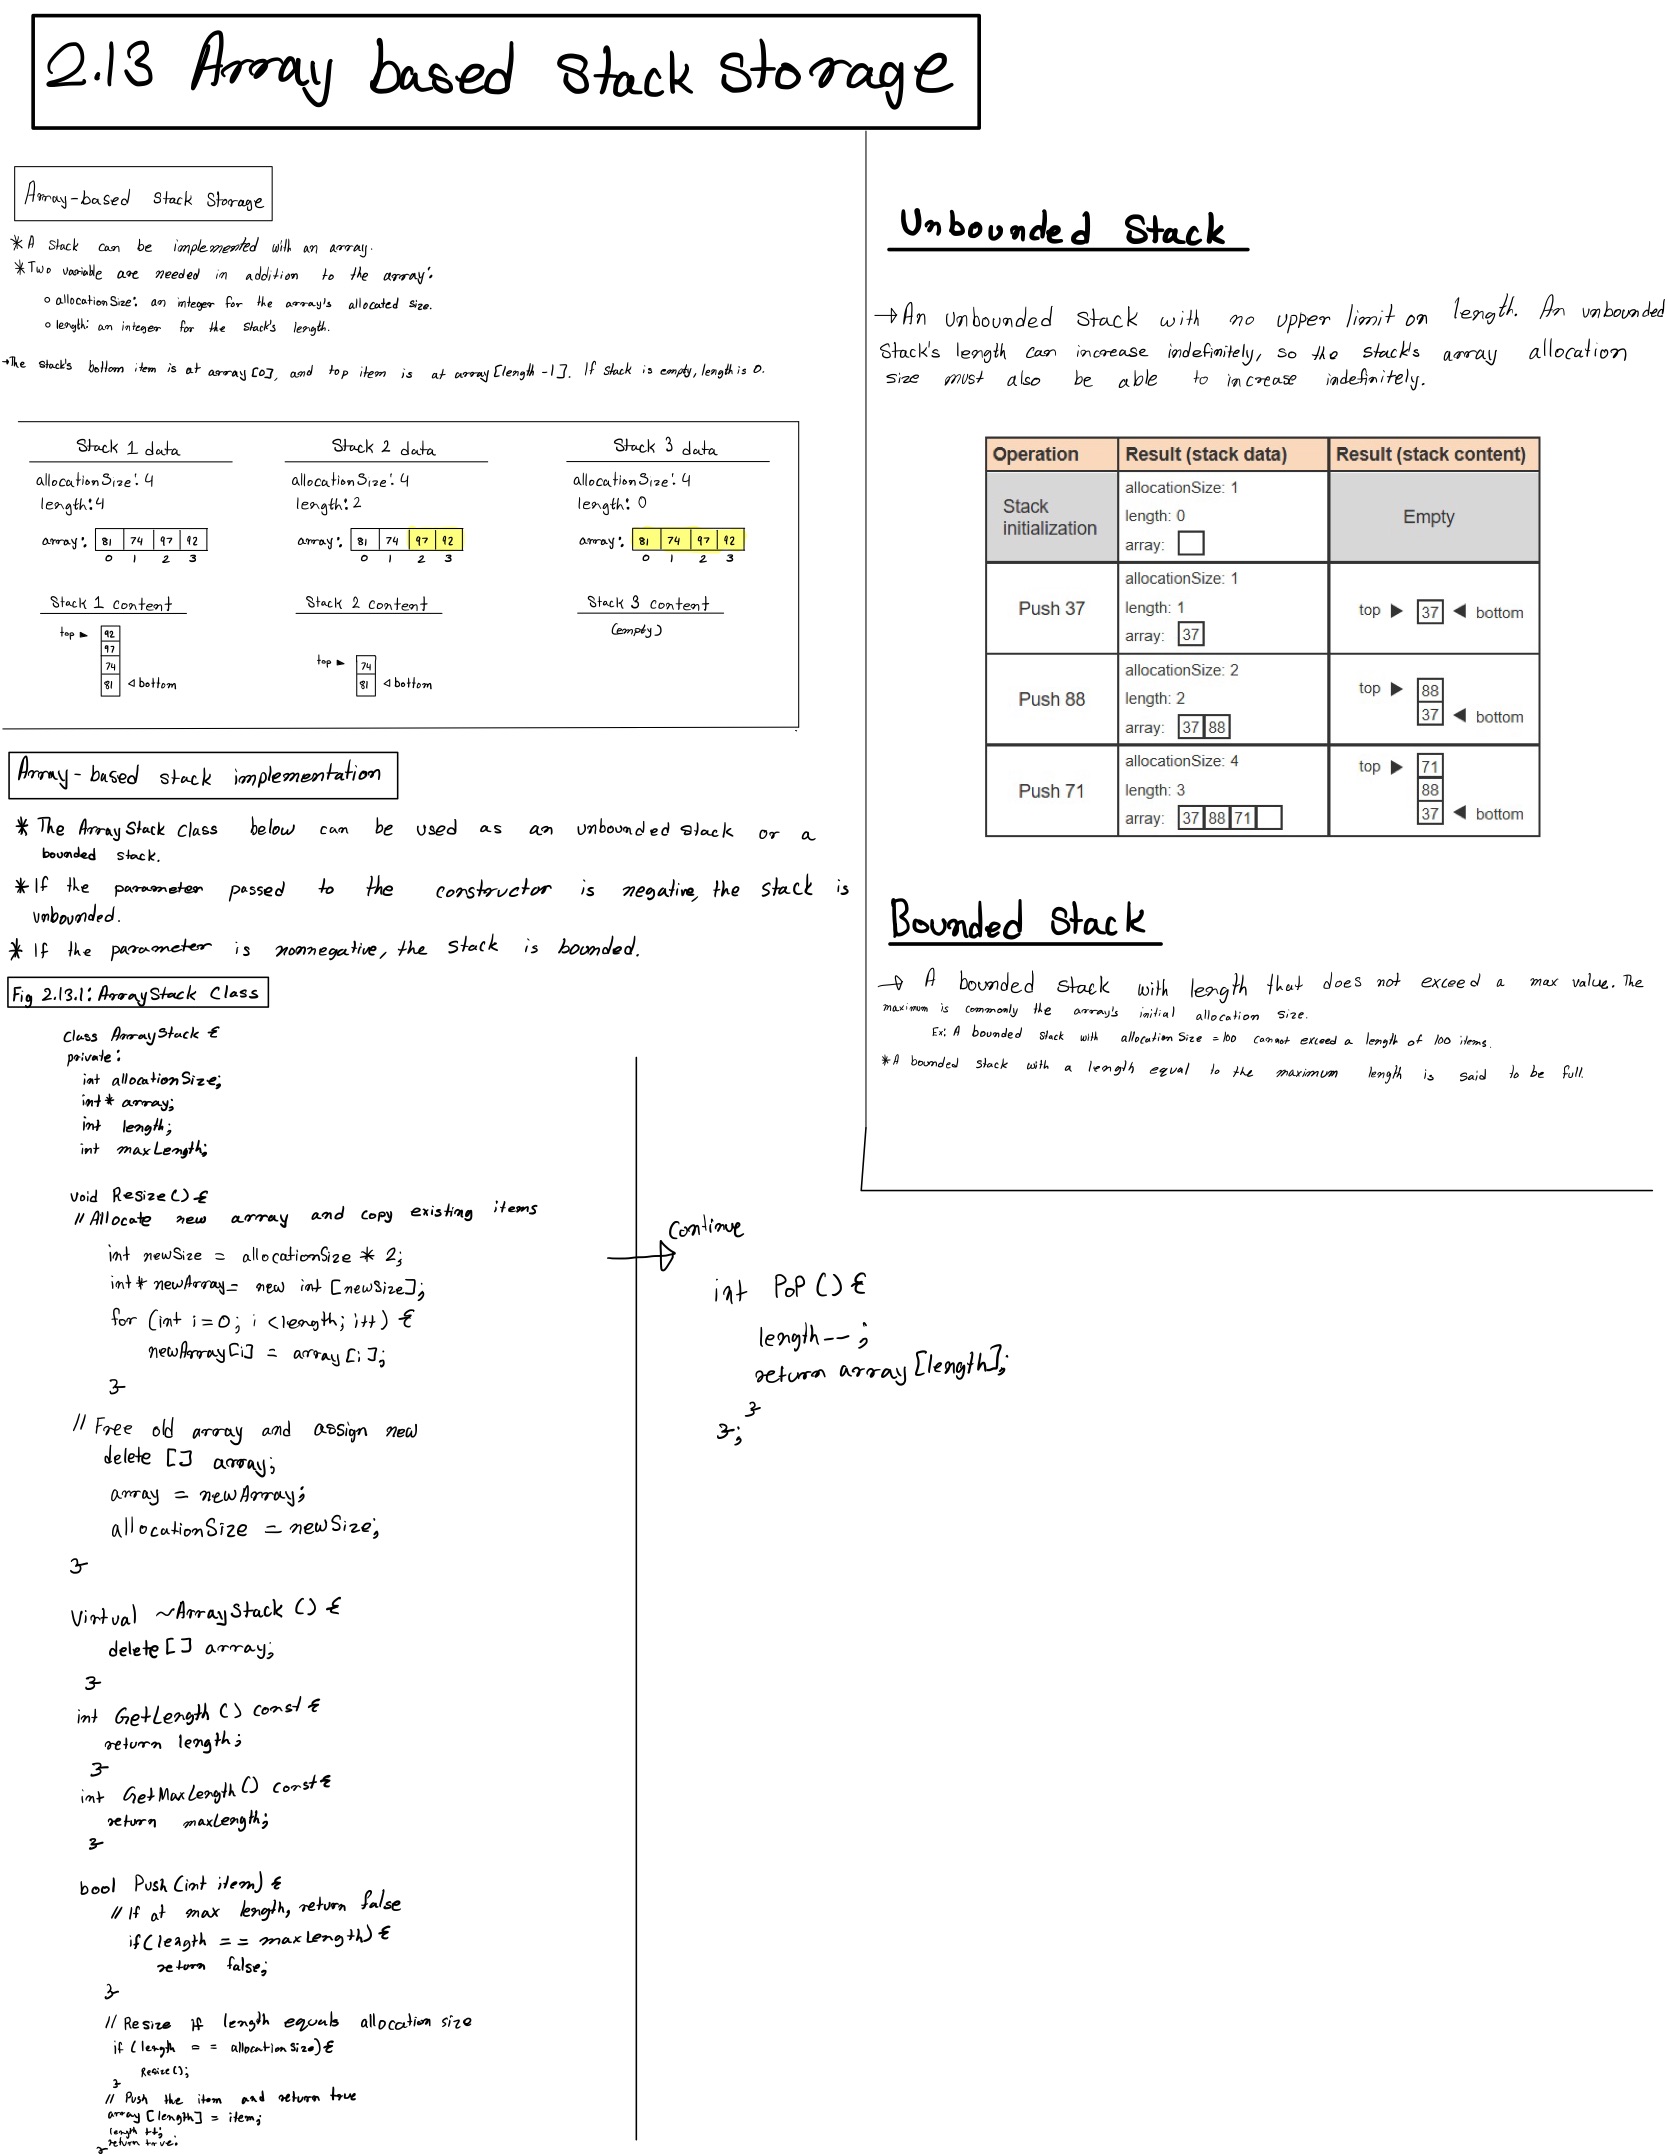 2.13 Array based Stack Storage
Array-based Stack Storage
* A Stack can be implemented with an array.
* Two variable are needed in addition to the array:
o allocationSize: an integer for the array's allocated size.
o length: an integer for the Stack's length.
→The Stack's bottom item is at array [0], and top item is at array [length -1]. If Stack is empty, length is 0.
Stack 1 data
allocationSize: 4
length: 4
array: 81 74 97 92
0 1 2 3
Stack 1 content
top ► 92
97
74
81 ◁ bottom
Stack 2 data
allocationSize: 4
length: 2
array: 81 74 97 92
0 1 2 3
Stack 2 content
top ► 74
81 ◁ bottom
Stack 3 data
allocationSize: 4
length: 0
array: 81 74 97 92
0 1 2 3
Stack 3 content
(empty)
Array-based stack implementation
* The ArrayStack Class below can be used as an unbounded stack or a
bounded stack.
* If the parameter passed to the constructor is negative, the stack is
unbounded.
* If the parameter is nonnegative, the Stack is bounded.
Fig 2.13.1: ArrayStack Class
Class ArrayStack {
private:
int allocationSize;
int* array;
int length;
int maxLength;
void Resize() {
// Allocate new array and copy existing items
int newSize = allocationSize * 2;
int* newArray = new int [newSize];
for (int i=0; i <length; i++) {
newArray[i] = array [i];
}
// Free old array and assign new
delete [] array;
array = newArray;
allocationSize = newSize;
}
Virtual ~ArrayStack () {
delete [] array;
}
int GetLength () const {
return length;
}
int GetMaxLength () const {
return maxLength;
}
bool Push (int item) {
// If at max length, return false
if (length == maxLength) {
return false;
}
// Resize if length equals allocation size
if (length == allocationSize) {
Resize();
}
// Push the item and return true
array [length] = item;
length ++;
return true;
}
Continue
int PoP () {
length--;
return array [length];
}
};
Unbounded Stack
→ An Unbounded Stack with no upper limit on length. An unbounded
Stack's length can increase indefinitely, so the stack's array allocation
size must also be able to increase indefinitely.
Operation Result (stack data) Result (stack content)
Stack
initialization
allocationSize: 1
length: 0
array:
Empty
Push 37
allocationSize: 1
length: 1
array: 37
top ► 37 ◄ bottom
Push 88
allocationSize: 2
length: 2
array: 37 88
top ► 88
37 ◄ bottom
Push 71
allocationSize: 4
length: 3
array: 37 88 71
top ► 71
88
37 ◄ bottom
Bounded Stack
→ A bounded stack with length that does not exceed a max value. The
maximum is commonly the array's initial allocation size.
Ex: A bounded Stack with allocation Size = 100 cannot exceed a length of 100 items.
* A bounded stack with a length equal to the maximum length is said to be full.